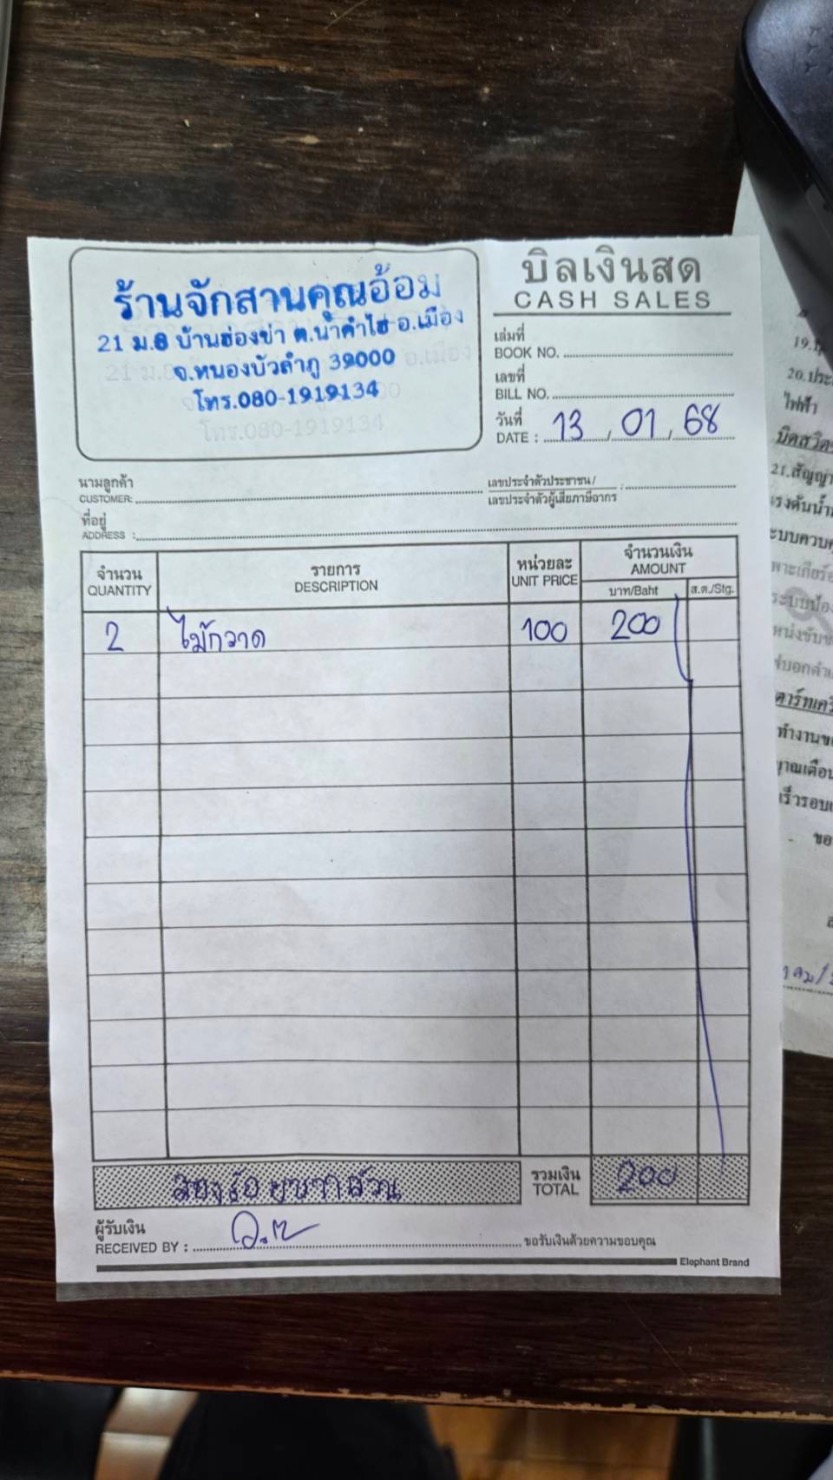 ร้านจักสานคุณอ้อม
21 ม.8 บ้านฮ่องข่า ต.นาคำไฮ อ.เมือง
จ.หนองบัวลำภู 39000
โทร.080-1919134
บิลเงินสด
CASH SALES
เล่มที่
BOOK NO.
เลขที่
BILL NO.
วันที่
DATE : 13 / 01 / 68
นามลูกค้า
CUSTOMER:
เลขประจำตัวประชาชน/
เลขประจำตัวผู้เสียภาษีอากร
ที่อยู่
ADDRESS :
จำนวน รายการ หน่วยละ จำนวนเงิน
QUANTITY DESCRIPTION UNIT PRICE AMOUNT
บาท/Baht ส.ต./Stg.
2 ไม้กวาด 100 200
สองร้อยบาทถ้วน
รวมเงิน
TOTAL 200
ผู้รับเงิน
RECEIVED BY :
ขอรับเงินด้วยความขอบคุณ
Elephant Brand
19.
20.ประ
ไฟฟ้า
21.สัญญา
แรงดันน้ำ
ระบบควบ